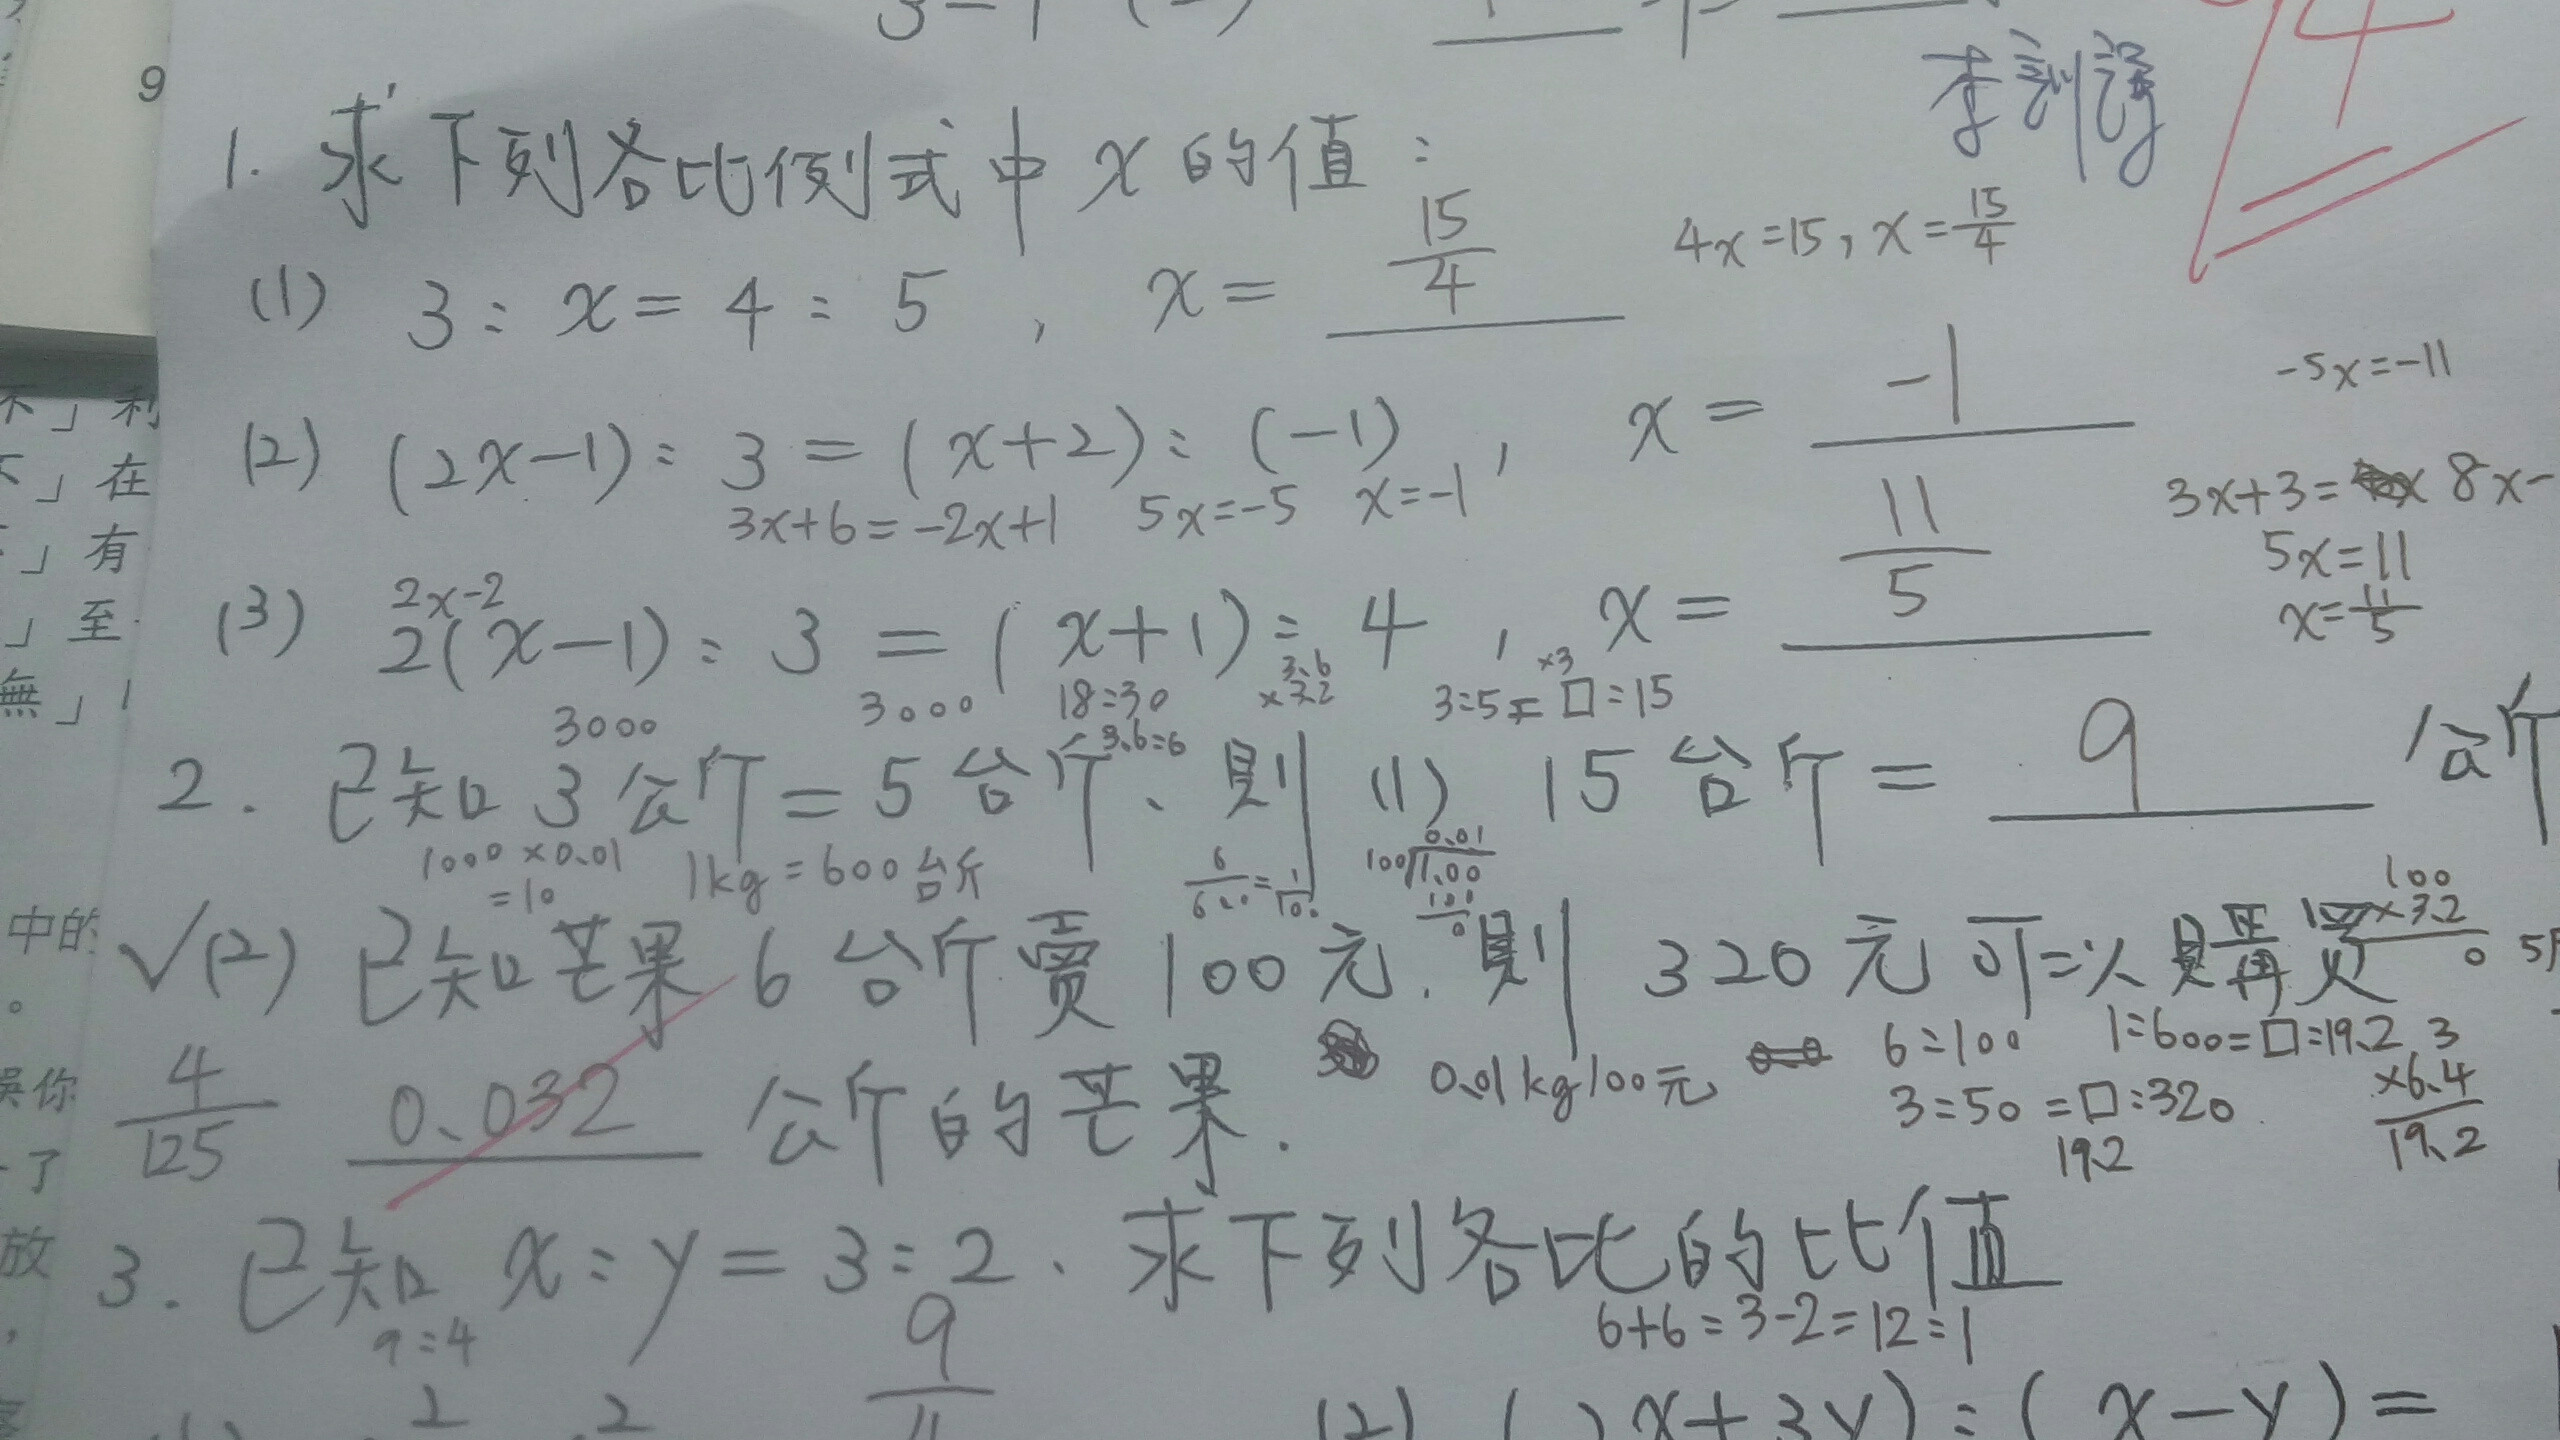 9
1. 求下列各比例式中 x 的值：
(1) 3：x = 4：5 , x = 15/4
4x=15, x=15/4
(2) (2x-1)：3 = (x+2)：(-1) , x = -1
3x+6=-2x+1 5x=-5 x=-1
-5x=-11
3x+3= 8x-
5x=11
x=11/5
2x-2
(3) 2(x-1)：3 = (x+1)：4 , x = 11/5
3000 3000 18:30 3.6 ×3.2 3:5=□:15 ×3
3.6:6
2. 已知 3 公斤 = 5 台斤、則 (1) 15 台斤 = 9 公斤
1000×0.01 =10 1kg=600台斤 6/600=1/100 100 1.00 0.01 100 0
100 ×3.2
√(2) 已知芒果 6 台斤賣 100 元. 則 320 元可以買
6:100 1:600=□:19.2 3
4/125 0.032 公斤的芒果.
0.01kg100元 3:50=□:320 ×6.4
19.2 19.2
3. 已知 x：y = 3：2、求下列各比的比值
9:4 6+6:3-2=12:1
9
(2) ( x+3y)：( x-y) =